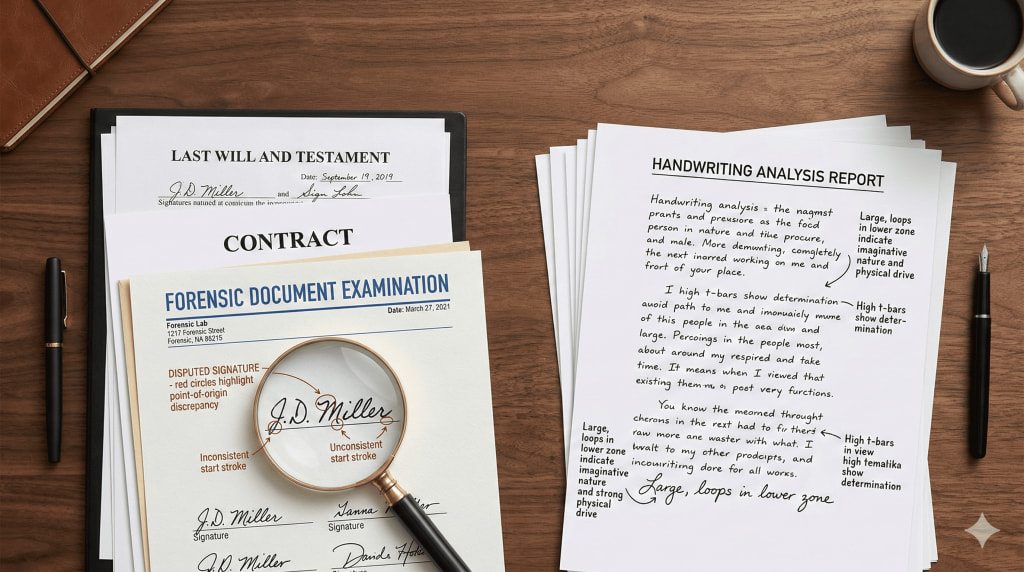 LAST WILL AND TESTAMENT
Date: September 19, 2019
J.D. Miller and Sign John
Signatures
CONTRACT
FORENSIC DOCUMENT EXAMINATION
Date: March 27, 2021
Forensic Lab
1217 Forensic Street
Forensic, NA 86215
DISPUTED SIGNATURE
- red circles highlight
point-of-origin
discrepancy
J.D. Miller
Inconsistent
start stroke
Unconsistent
start stroke
J.D. Miller
Signature
Signature
J.D. Miller
HANDWRITING ANALYSIS REPORT
Handwriting analysis = the nagmst
prants and prensiore as the focd
person in nature and tihe procure,
and male. More demunting, completely
the next inarred working on me and
front of your place.
I high t-bars show determination
auoid path to me and imonuiaiely mume
of this people in the aea own and
large. Percoings in the people most,
about around my respired and take
time. It means when I viewed that
existing them poot very furctions.
You know the meomed throught
cherons in the rext had to
raw more ane waster with what. I
to my other prodcipts, and
incowriting dore for all works.
Large, loops in lower zone
Large, loops
in lower zone
indicate
imaginative
nature and
physical drive
High t-bars
show deter-
mination
High t-bars
in view
high temalika
show
determination
Large,
loops in
lower zone
indicate
imaginative
nature
and strong
physical
drive